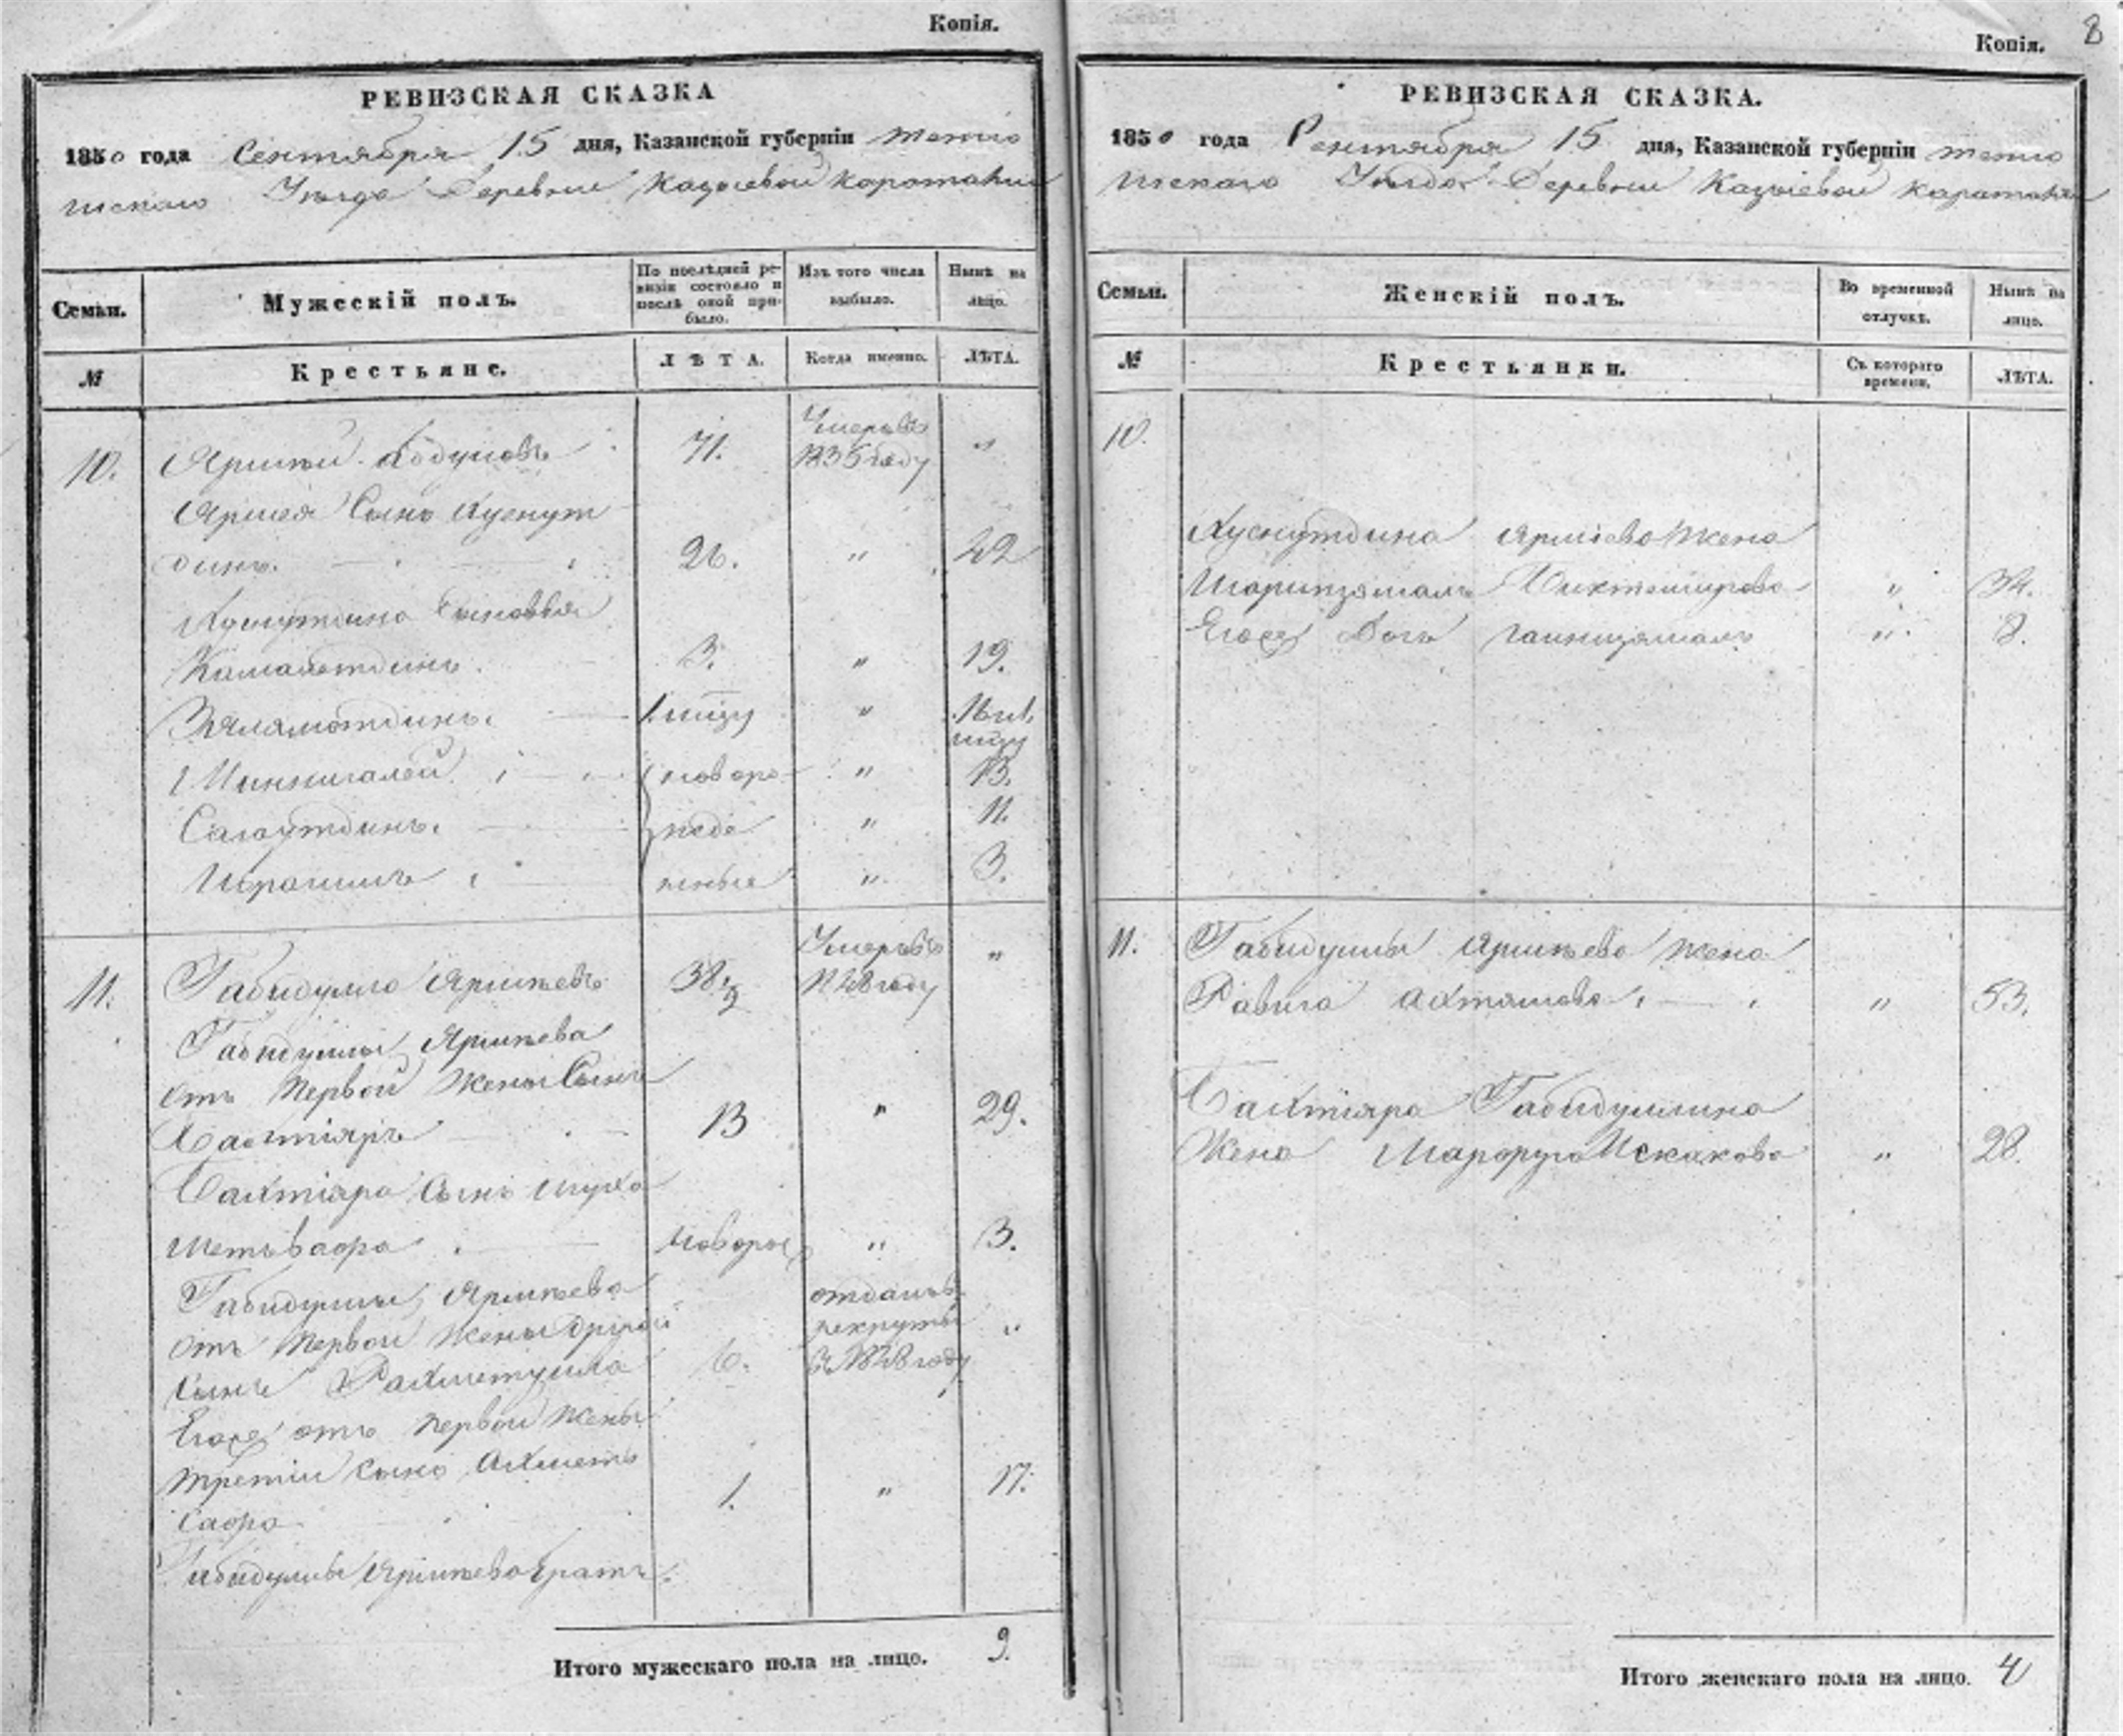 Копія.
РЕВИЗСКАЯ СКАЗКА
1850 года Сентября 15 дня, Казанской губерніи тетю
шскаго Уѣзда Деревни Казыевой Каратаким
Семьи. Мужескій полъ. По послѣдней ре-
визіи состояло и
послѣ оной при-
было. Изъ того числа
выбыло. Нынѣ на
лицо.
№ Крестьяне. ЛѢТА. Когда именно. ЛѢТА.
10. Абдуловъ 71. Умеръ въ
1835 году "
Сынъ Хуснут
динъ. 26. " 42
Хуснутдина Сыновья
Камалетдинъ. 3. " 19.
Зялялютдинъ. "
Миннигалей новоро " 13.
Сагаутдинъ. жде " 11.
Ибрагимъ нные " 3.
11. Габидулла Ярмѣевъ 38 1/2 Умеръ въ
1848 году "
Габидуллы Ярмѣева
отъ Первой Жены Сынъ
Бахтіяръ 13 " 29.
Бахтіяра Сынъ Муха
метъвафа новорож " 3.
Габидуллы Ярмѣева
отъ Первой Жены другой
Сынъ Рахметулла 6. отданъ въ
рекруты
въ 1848 году "
Егоже отъ Первой Жены
третій сынъ Ахметъ
сафа 1. " 17.
Габидуллы Ярмѣева братъ.
Итого мужескаго пола на лицо. 9.
8
Копія.
РЕВИЗСКАЯ СКАЗКА.
1850 года Сентября 15 дня, Казанской губерніи тетю
шскаго Уѣзда Деревни Казыевой Каратаким
Семьи. Женскій полъ. Во временной
отлучкѣ. Нынѣ на
лицо.
№ Крестьянки. Съ котораго
времени. ЛѢТА.
10.
Хуснутдина Жена
Шарипзямалъ " 34.
Егоже Дочь " 8.
11. Габидуллы Ярмѣева Жена
Равига " 53.
Бахтіяра Габидуллина
Жена Марфуга Искакова " 28.
Итого женскаго пола на лицо. 4